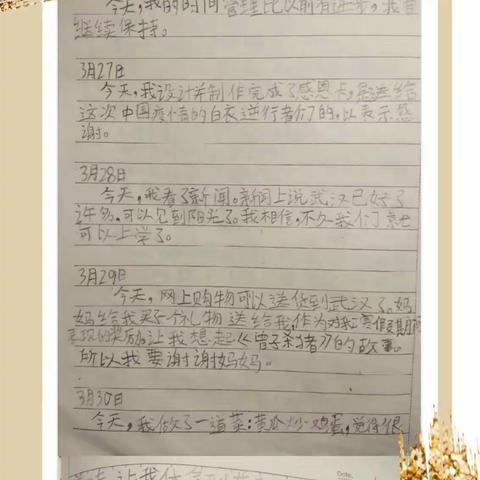 今天,我的时间管理比以前有进步,我会
继续保持。
3月27日
今天,我设计并制作完成了感恩卡,是送给
这次中国疫情的白衣逆行者们的,以表示感
谢。
3月28日
今天,我看了新闻。新闻上说武汉已好了
许多,可以见到阳光了。我相信,不久我们就
可以上学了。
3月29日
今天,网上购物可以送货到武汉了。妈
妈给我买了个礼物送给我,作为对我寒假
表现的奖励,让我想起《曾子杀猪》的故事。
所以我要谢谢妈妈。
3月30日
今天,我做了一道菜:黄瓜炒鸡蛋,觉得很
让我
Date.